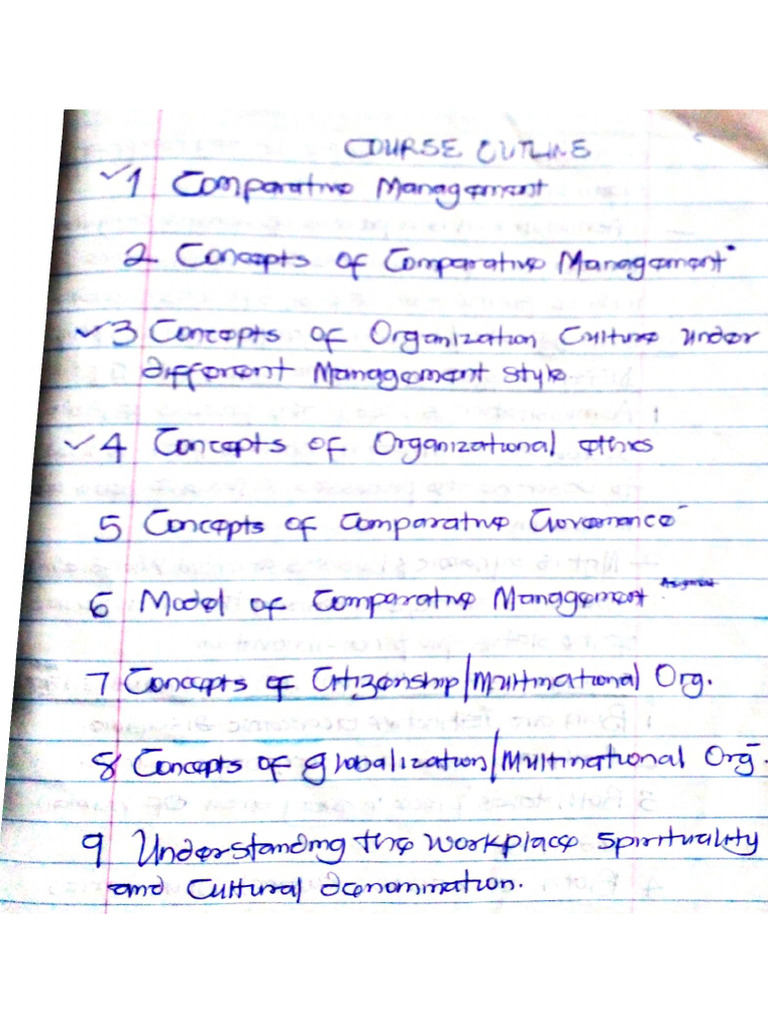 COURSE OUTLINE
✓1 Comparative Management
2 Concepts of Comparative Management
✓3 Concepts of Organization Culture under
different Management style
✓4 Concepts of Organizational ethics
5 Concepts of Comparative Governance
6 Model of Comparative Management Assignment
7 Concepts of Citizenship/Multinational Org.
8 Concepts of globalization/Multinational Org.
9 Understanding the workplace spirituality
and Cultural denomination.